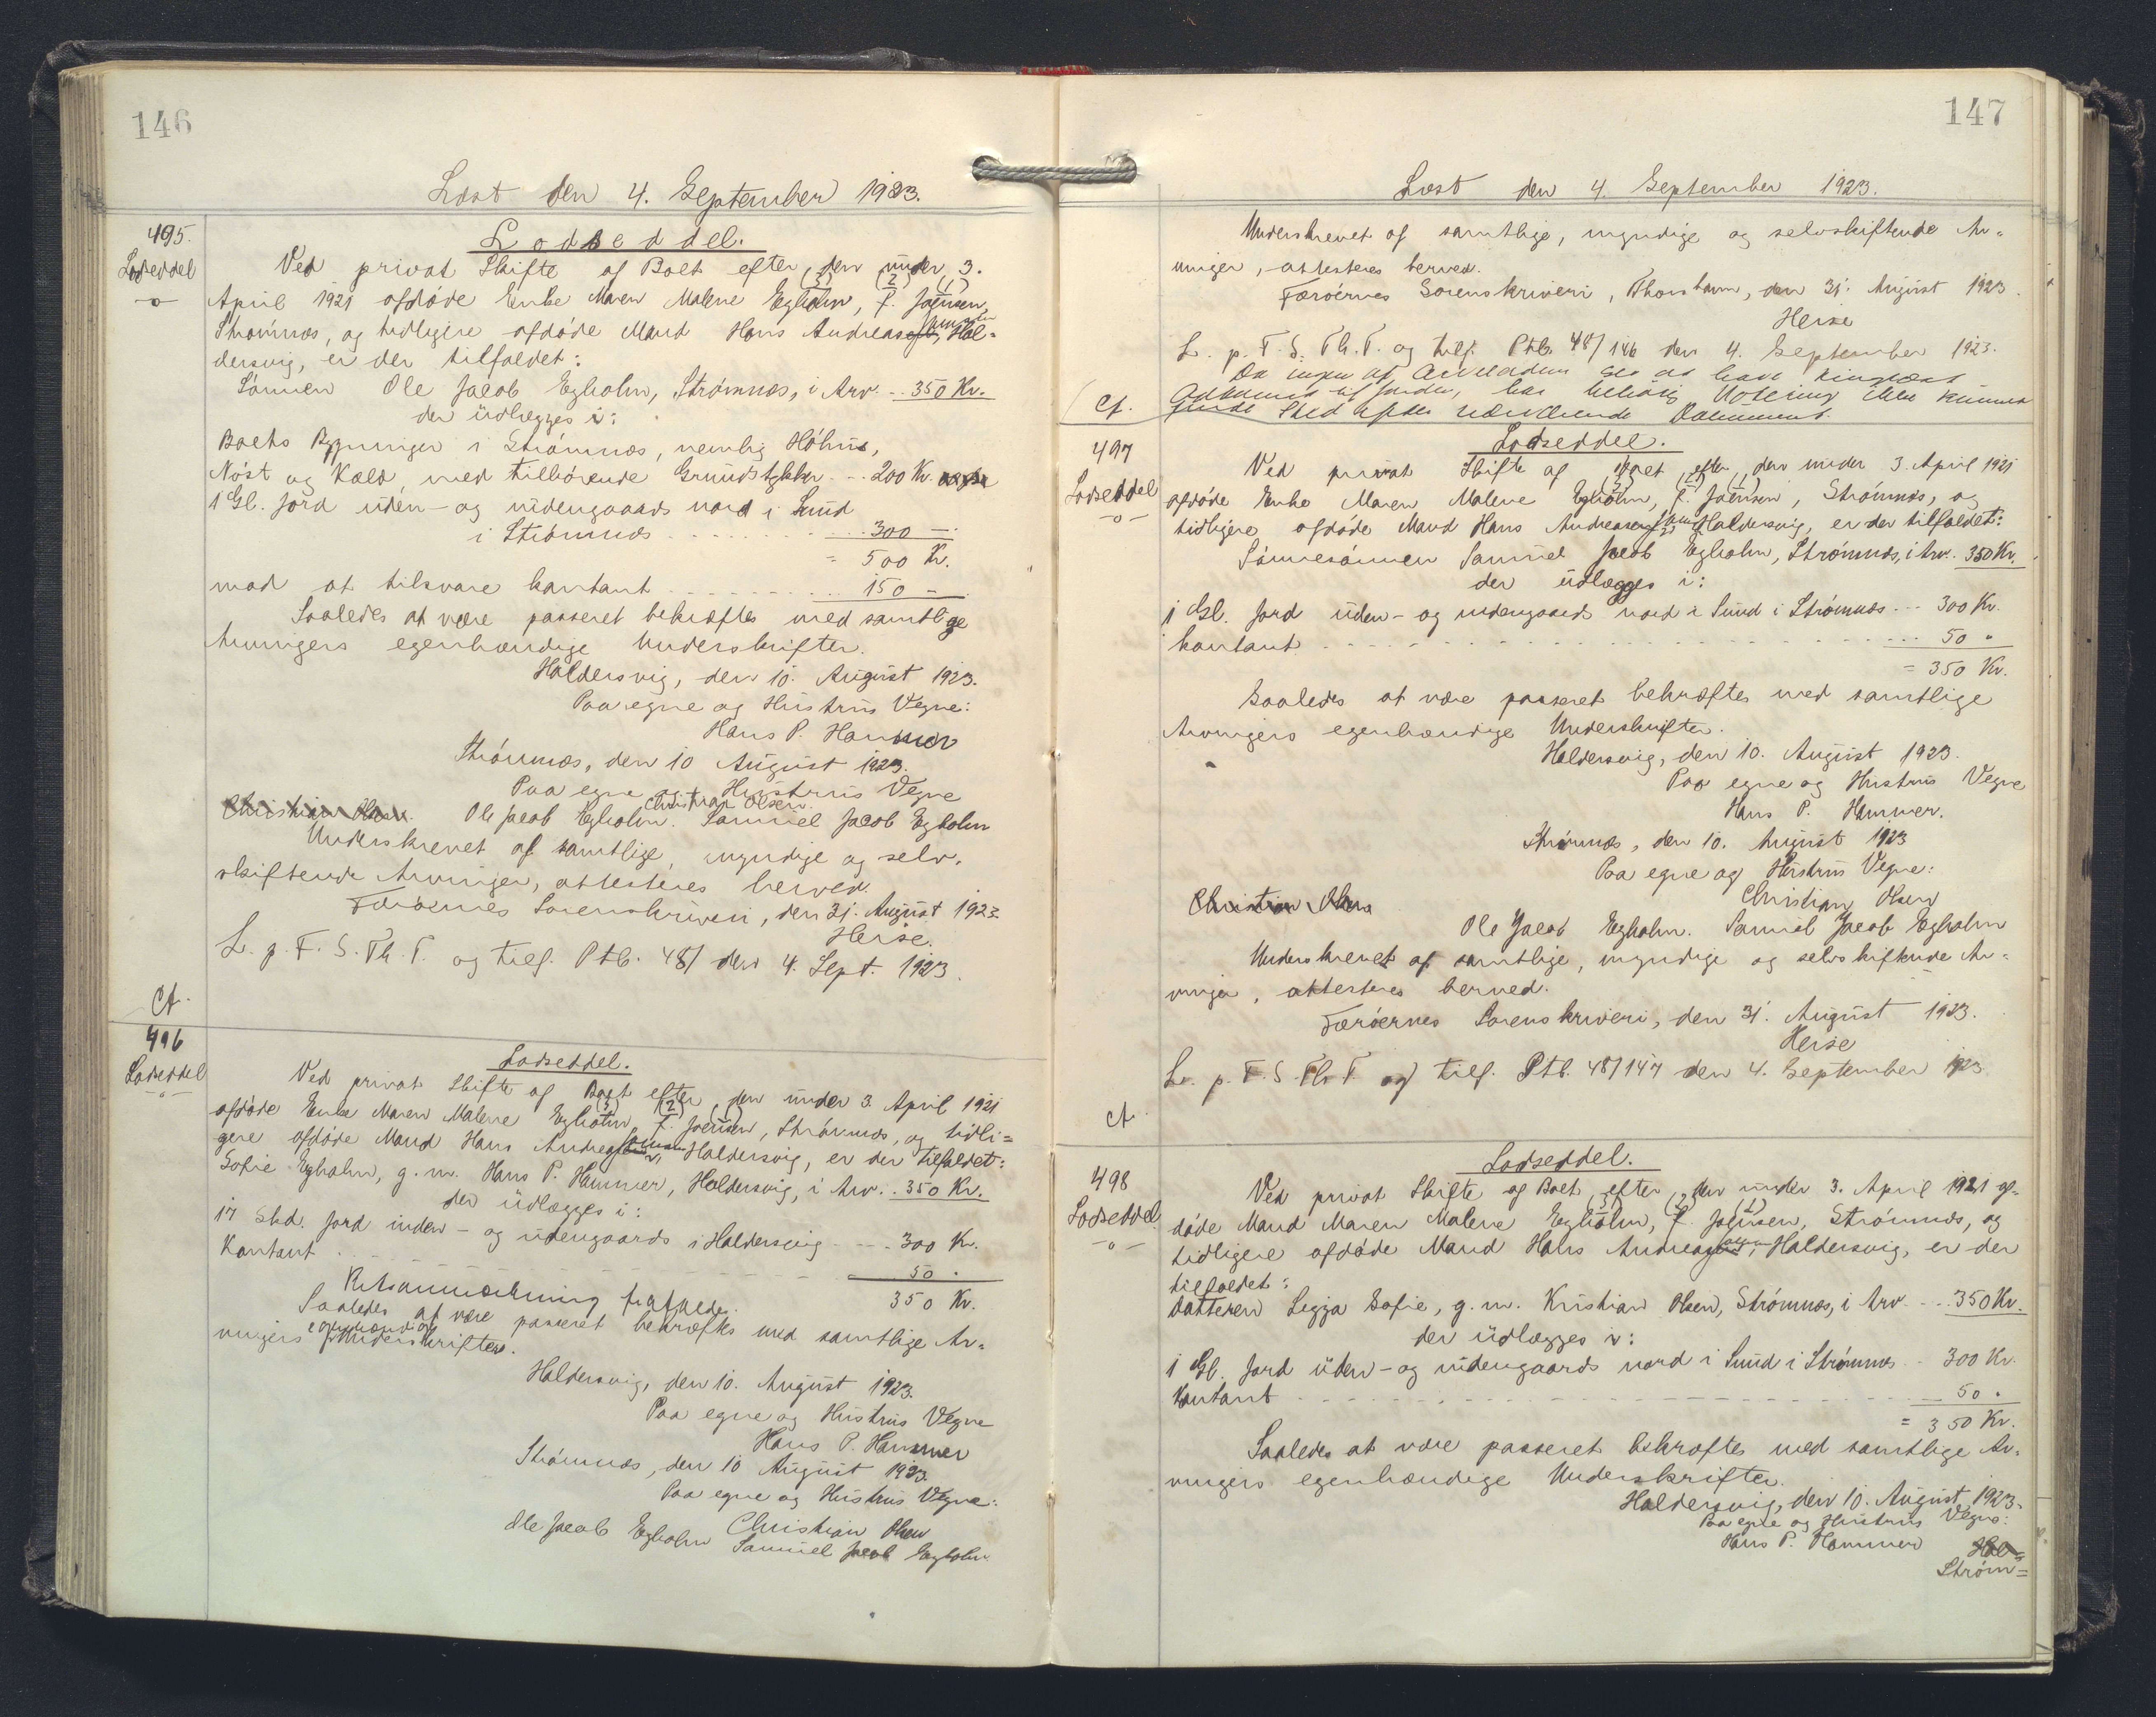 146
Læst den 4. September 1923.
495.
Lodseddel
Lodseddel.
Ved privat Skifte af Boet efter den under 3.
April 1921 afdøde Enke Maren Malene Egholm, f. Joensen,
Strømnæs, og tidligere afdøde Mand Hans Andreas Hal-
dersvig, er der tilfaldet:
Sønnen Ole Jacob Egholm, Strømnæs, i Arv .. 350 Kr.
der udlægges i:
Boets Bygninger i Strømnæs, nemlig Høhus,
Nøst og Kæld, med tilhørende Grundstykker .. 200 Kr.
1 Gl. Jord uden- og indengaards nord i Sund
i Strømnæs ........ 300 —
= 500 Kr.
mod at tilsvare kontant ........ 150 —
Saaledes at være passeret bekræftes med samtlige
Arvingers egenhændige Underskrifter.
Haldersvig, den 10. August 1923.
Paa egne og Hustrus Vegne:
Hans P. Hammer
Strømnæs, den 10 August 1923.
Paa egne og Hustrus Vegne
Christian Olsen.
Christian Olsen Ole Jacob Egholm. Samuel Jacob Egholm
Underskrevet af samtlige, myndige og selv-
skiftende Arvinger, attesteres herved.
Færøernes Sorenskriveri, den 31. August 1923
Heise.
L. p. F. S. Th. T. og tilf. Ptb. 48/ den 4. Sept. 1923.
Ct.
496
Lodseddel
Lodseddel.
Ved privat Skifte af Boet efter den under 3 April 1921
afdøde Enke Maren Malene Egholm, f. Joensen, Strømnæs, og tidli=
gere afdøde Mand Hans Andreas Haldersvig, er der tilfaldet:
Sofie Egholm, g. m. Hans P. Hammer, Haldersvig, i Arv .. 350 Kr.
der udlægges i:
17 Skd. Jord inden- og udengaards i Haldersvig .... 300 Kr.
Kontant ........ 50 "
350 Kr.
Retsanmærkning frafaldes.
Saaledes at være passeret bekræftes med samtlige Ar-
vingers egenhændige Underskrifter.
Haldersvig, den 10. August 1923.
Paa egne og Hustrus Vegne
Hans P. Hammer
Strømnæs, den 10 August 1923.
Paa egne og Hustrus Vegne:
Christian Olsen
Ole Jacob Egholm Samuel Jacob Egholm.
147
Læst den 4. September 1923.
Underskrevet af samtlige, myndige og selvskiftende Ar-
vinger, attesteres herved.
Færøernes Sorenskriveri, Thorshavn, den 31. August 1923.
Heise
L. p. F. S. Th. T. og tilf. Ptb. 48/146 den 4. September 1923.
Da ingen af Arveladerne ses at have tinglæst
Adkomst til Jorden, har behørig Notering ikke kunnet
finde Sted efter nærværende Dokument.
Ct.
497
Lodseddel
Lodseddel.
Ved privat Skifte af Boet efter den under 3. April 1921
afdøde Enke Maren Malene Egholm, f. Joensen, Strømnæs, og
tidligere afdøde Mand Hans Andreas Haldersvig, er der tilfaldet:
Sønnesønnen Samuel Jacob Egholm, Strømnæs, i Arv .. 350 Kr.
der udlægges i:
1 Gl. Jord uden- og indengaards nord i Sund i Strømnæs ... 300 Kr.
kontant ........ 50 "
= 350 Kr.
Saaledes at være passeret bekræftes med samtlige
Arvingers egenhændige Underskrifter.
Haldersvig, den 10. August 1923.
Paa egne og Hustrus Vegne
Hans P. Hammer.
Strømnæs, den 10. August 1923
Paa egne og Hustrus Vegne:
Christian Olsen Christian Olsen
Ole Jacob Egholm. Samuel Jacob Egholm
Underskrevet af samtlige, myndige og selvskiftende Ar-
vinger, attesteres herved.
Færøernes Sorenskriveri, den 31. August 1923.
Heise
L. p. F. S. Th. T. og tilf. Ptb. 48/147 den 4. September 1923
Ct.
498
Lodseddel
Lodseddel.
Ved privat Skifte af Boet efter den under 3. April 1921 af-
døde Mand Maren Malene Egholm, f. Joensen, Strømnæs, og
tidligere afdøde Mand Hans Andreas Haldersvig, er der
tilfaldet:
Datteren Legja Sofie, g. m. Kristian Olsen, Strømnæs, i Arv .... 350 Kr.
der udlægges i:
1 Gl. Jord uden- og indengaards nord i Sund i Strømnæs .. 300 Kr.
kontant ........ 50 "
= 350 Kr.
Saaledes at være passeret bekræftes med samtlige Ar-
vingers egenhændige Underskrifter.
Haldersvig, den 10. August 1923.
Paa egne og Hustrus Vegne:
Hans P. Hammer Hal=
Strøm=